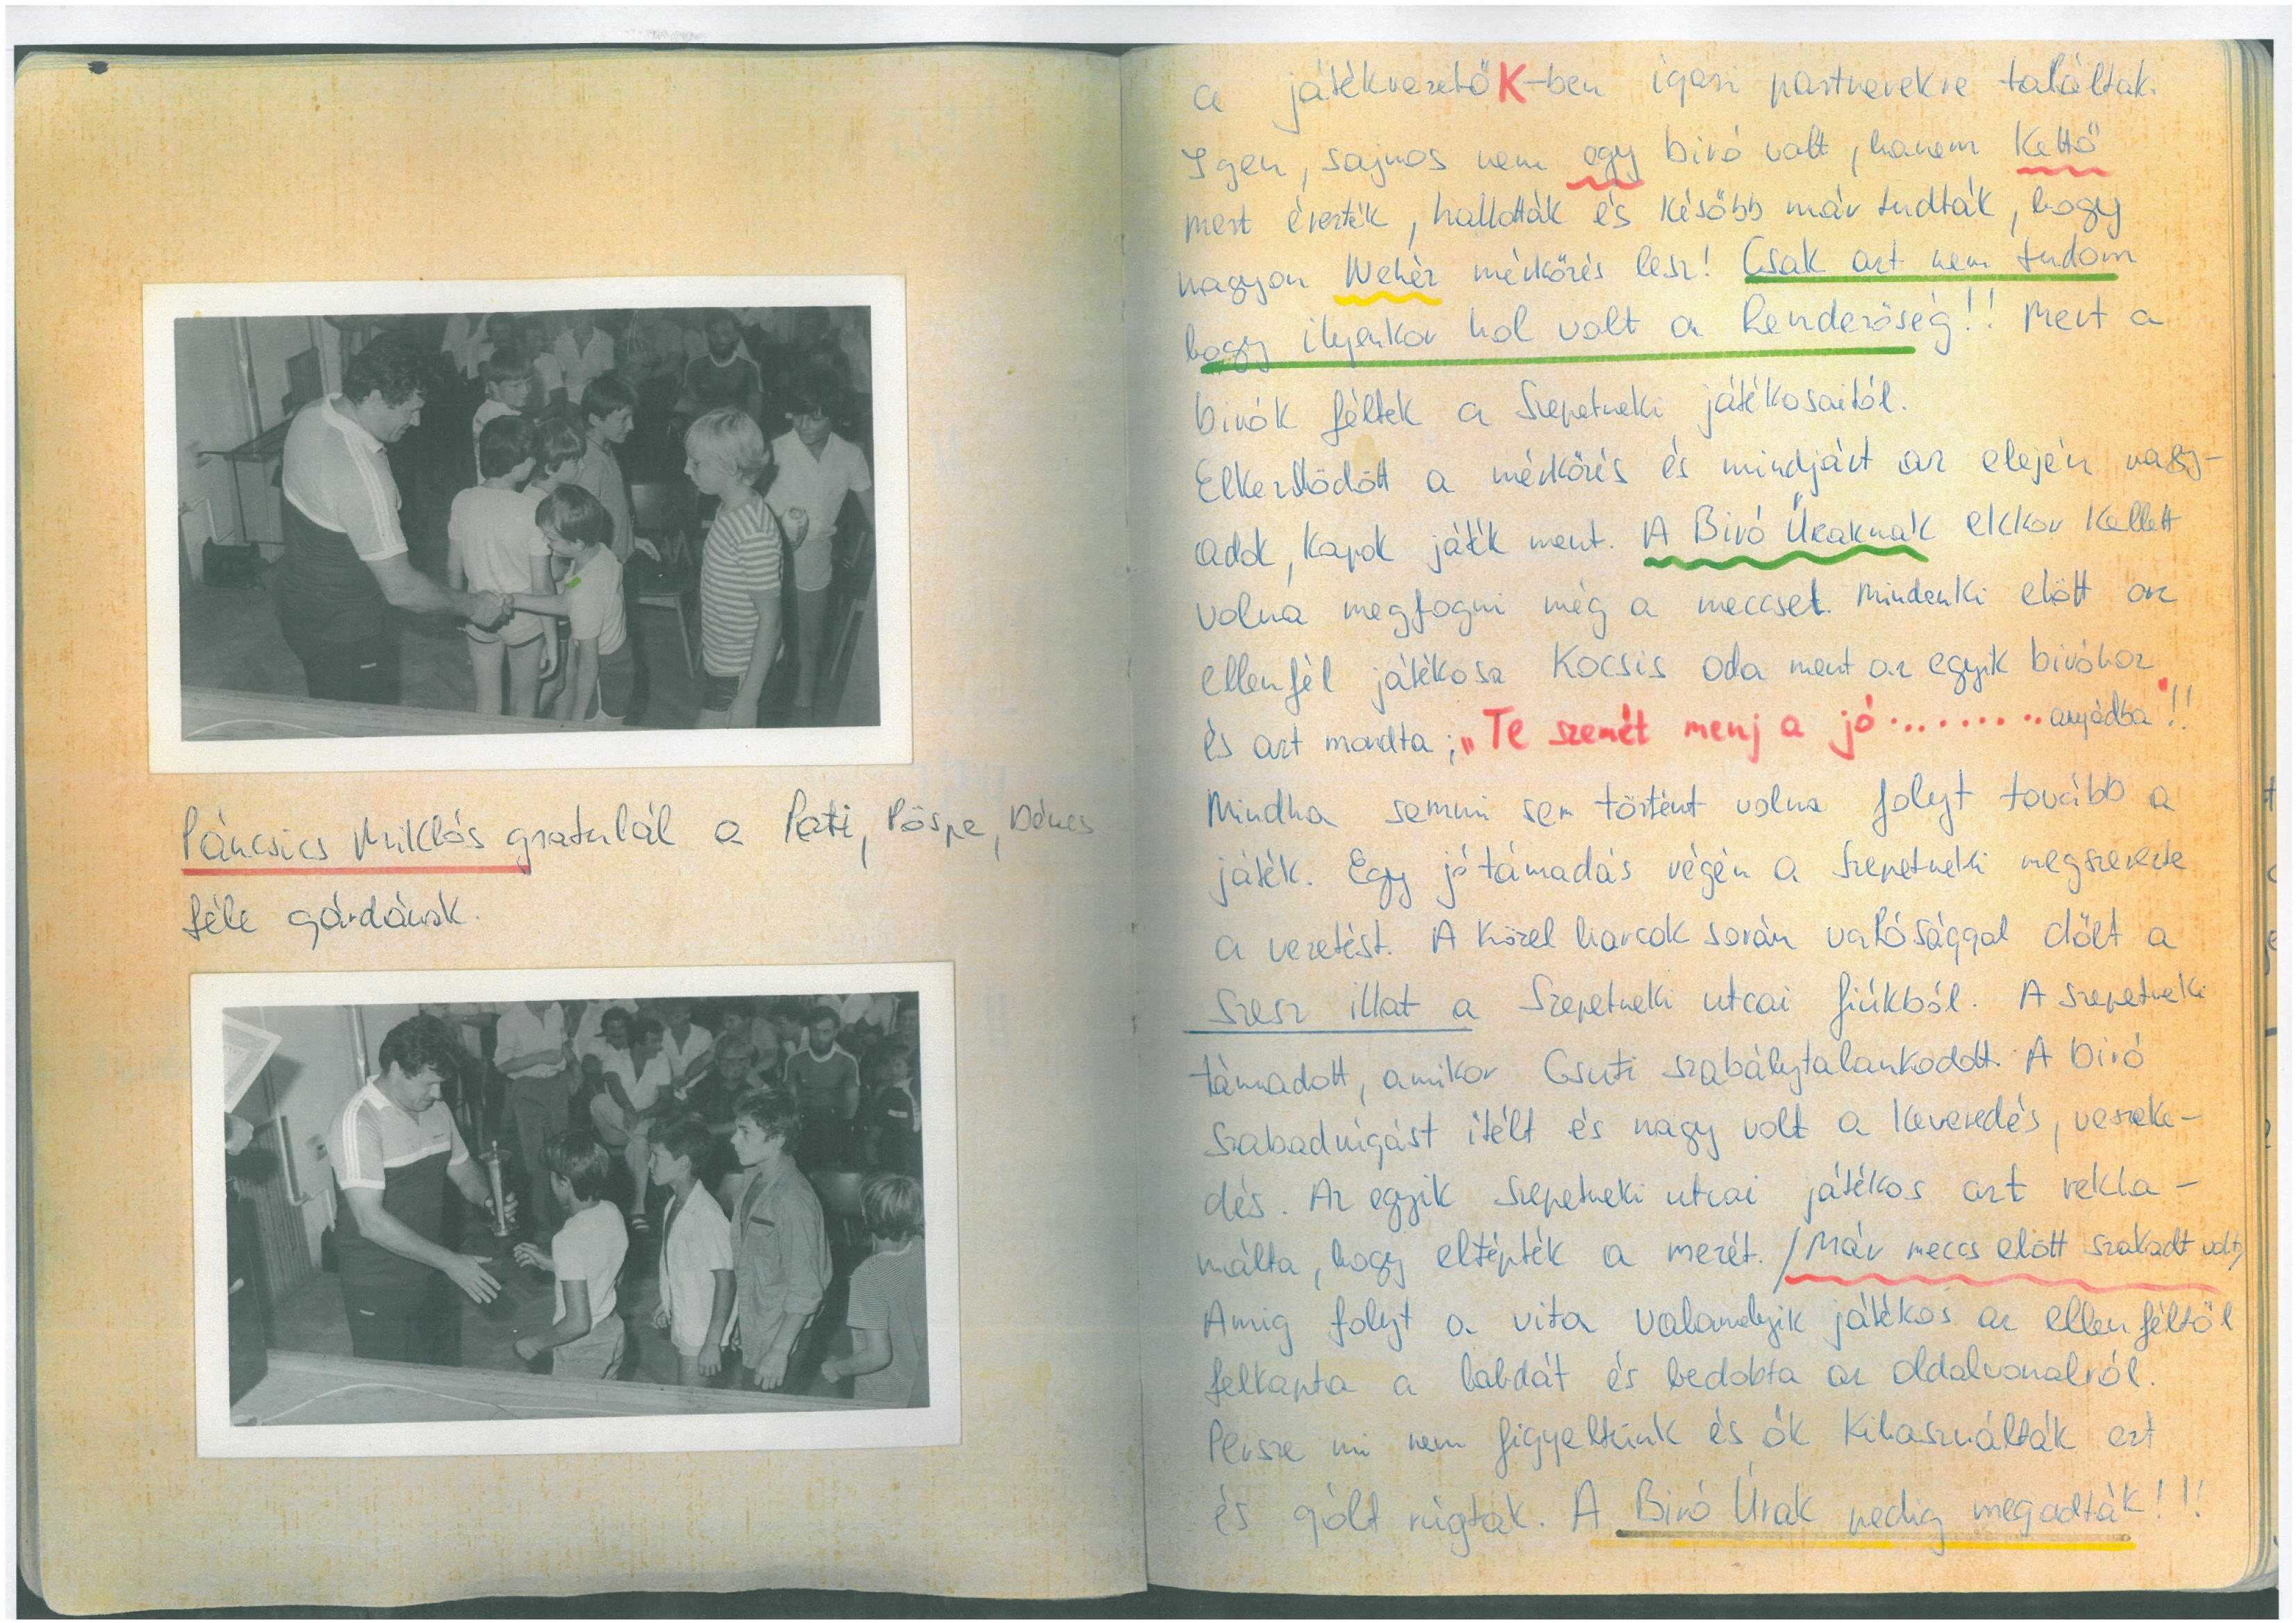 Páncsics Miklós gratulál a Pati, Pöspe, Dénes
féle gárdának.
a játékvezetőK-ben igazi partnerekre találtak.
Igen, sajnos nem egy biró volt, hanem Kettő
mert érezték, hallották és később már tudták, hogy
nagyon Nehéz mérkőzés lesz! Csak azt nem tudom
hogy ilyenkor hol volt a Renderőség!! Mert a
birók féltek a Szepetneki játékosaitól.
Elkezdődött a mérkőzés és mindjárt az elején nagy-
adok, kapok játék ment. A Biró Úraknak ekkor Kellett
volna megfogni még a meccset. Mindenki előtt az
ellenfél játékosa Kocsis oda ment az egyik biróhoz
és azt mondta; „Te szemét menj a jó ......... anyádba"!!
Mindha semmi sem történt volna folyt tovább a
játék. Egy jó támadás végén a Szepetneki megszerezte
a vezetést. A közel harcok során valósággal dőlt a
szesz illat a Szepetneki utcai fiúkból. A Szepetneki
támadott, amikor Csuti szabálytalankodott. A biró
szabadrúgást itélt és nagy volt a Keveredés, veszeke-
dés. Az egyik Szepetneki utcai játékos azt rekla-
málta, hogy eltépték a mezét. /Már meccs előtt szakadt volt/
Amig folyt a vita valamelyik játékos az ellenféltől
felkapta a labdát és bedobta az oldalvonalról.
Persze mi nem figyeltünk és ők Kihasználták ezt
és gólt rúgtak. A Biró Úrak pedig megadták!!!